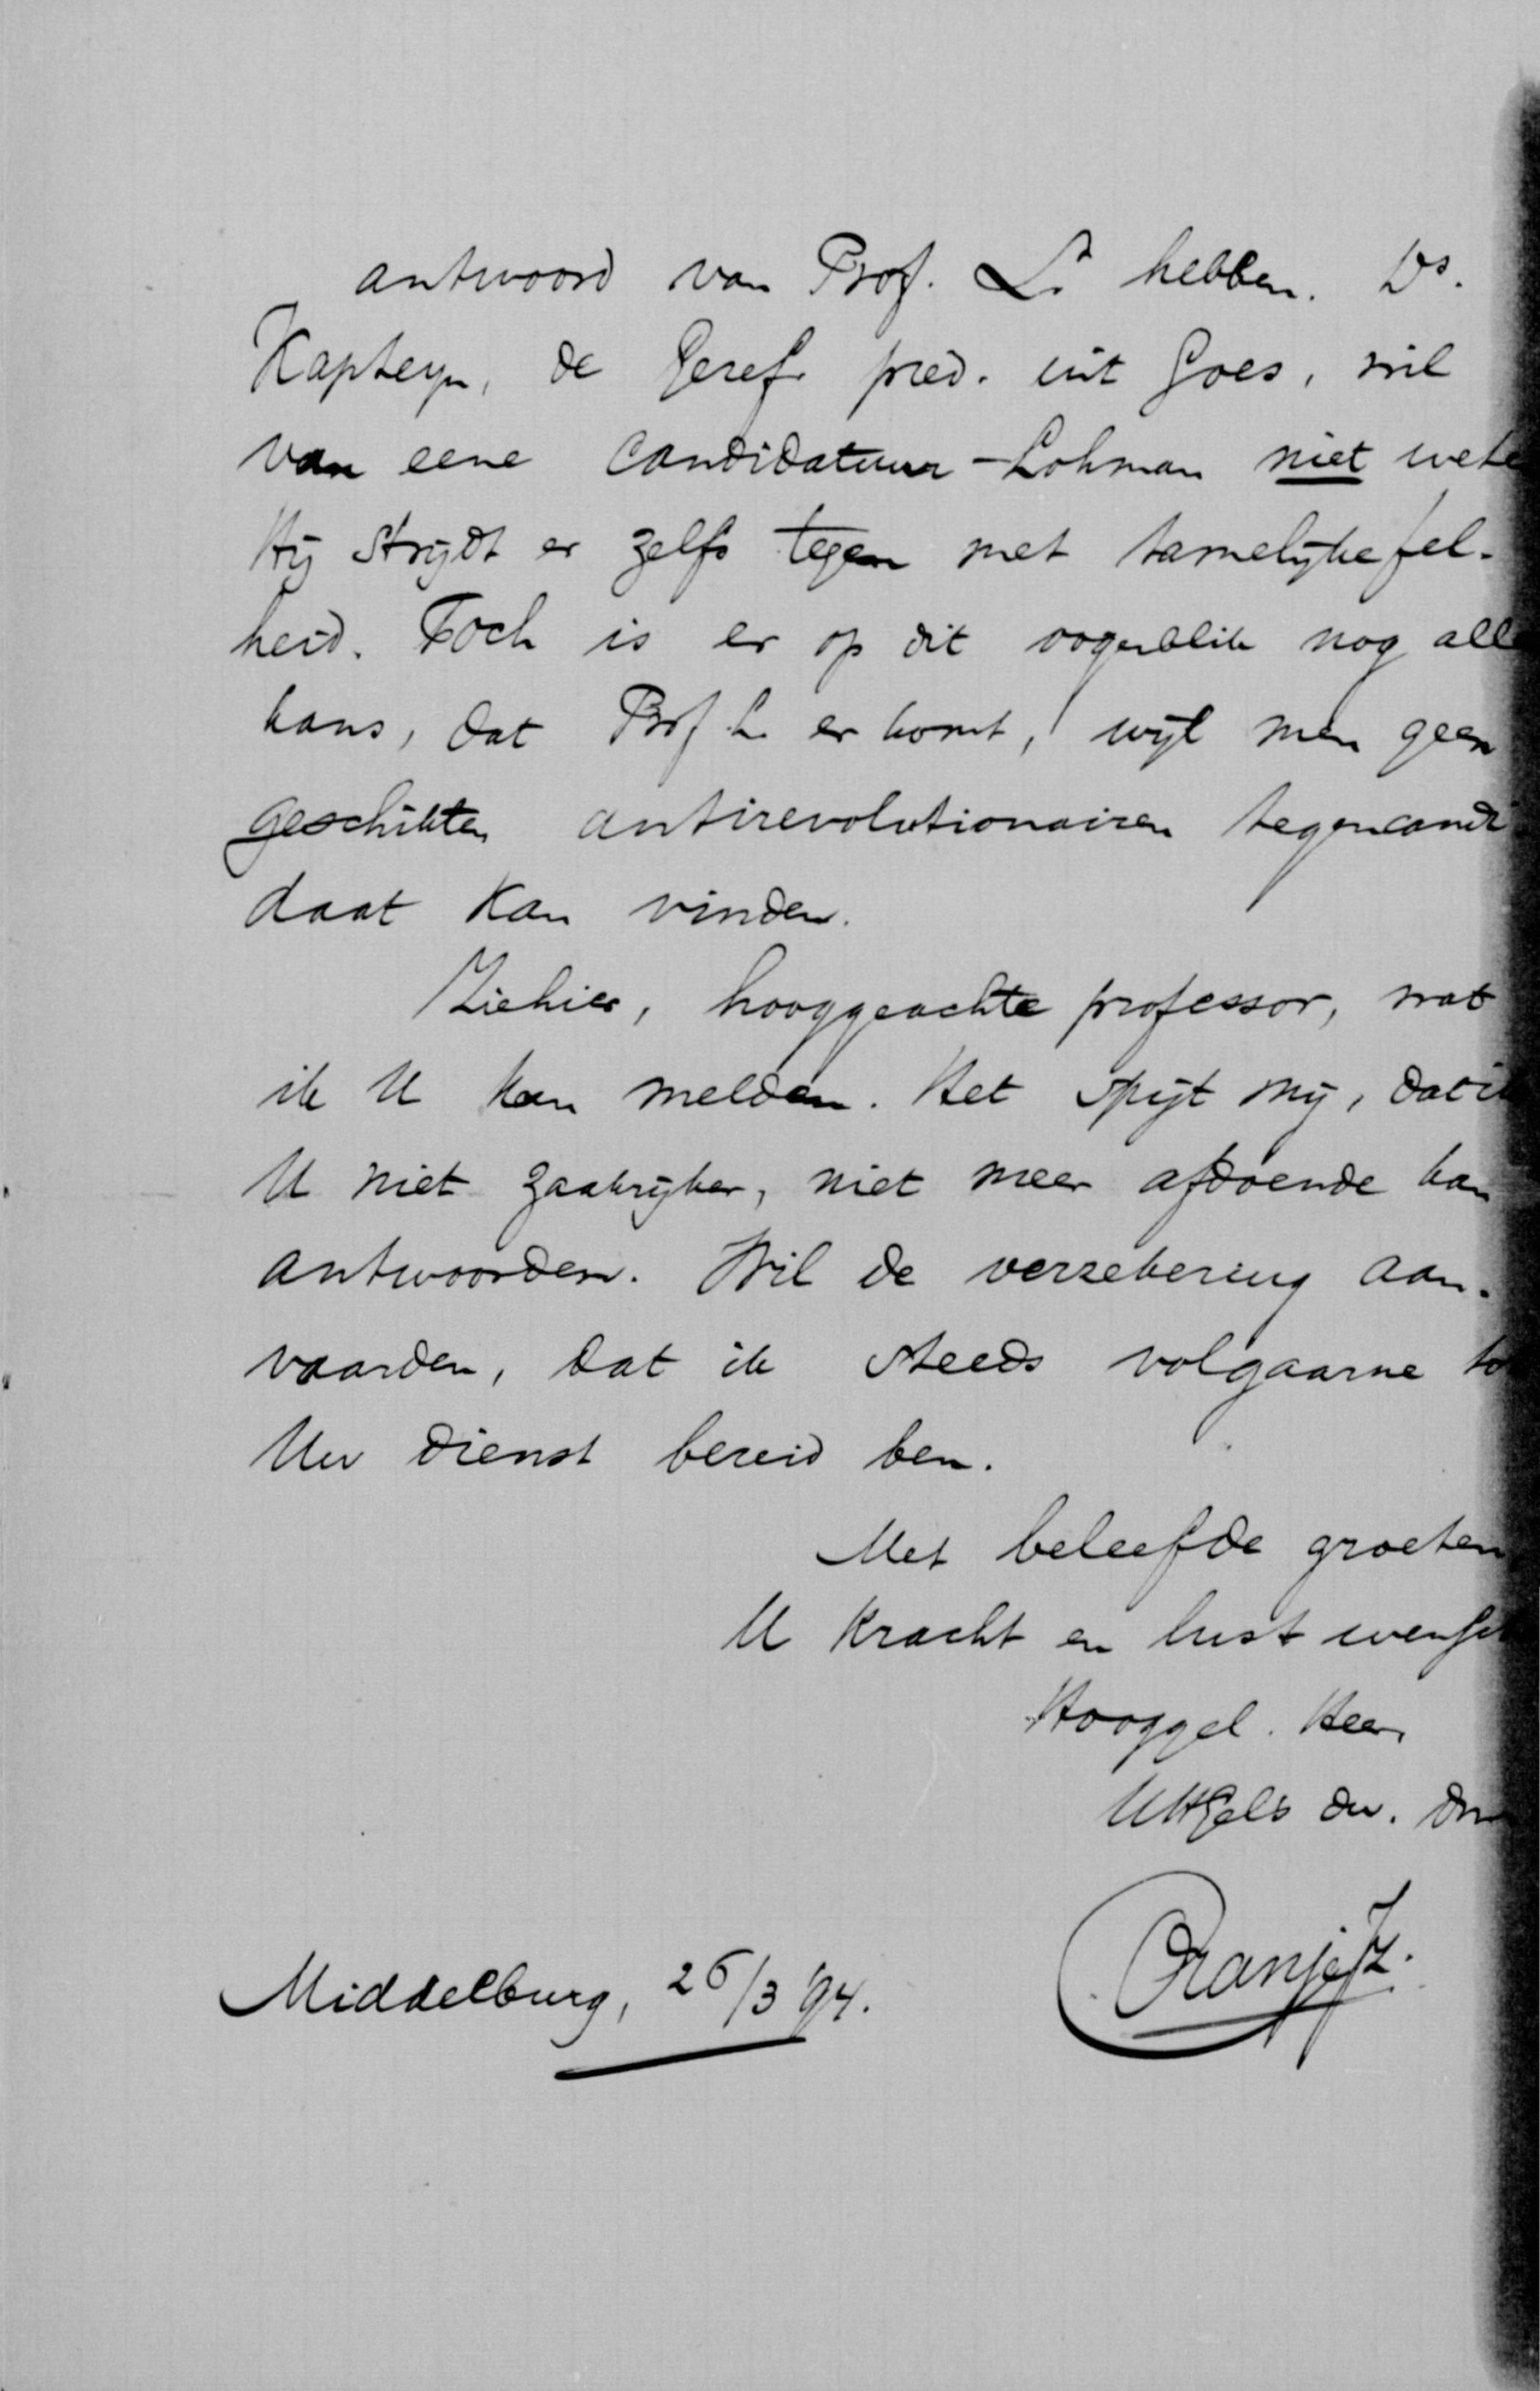 antwoord van Prof. L. hebben. Ds.
Kapteyn, de Geref. pred. uit Goes, wil
van eene candidatuur-Lohman niet wete
Hij strijdt er zelfs tegen met tamelijke fel-
heid. Toch is er op dit oogenblik nog alle
kans, dat Prof L. er komt, wijl men geen
geschikten antirevolutionairen tegencandi
daat kan vinden.
Ziehier, hooggeachte professor, wat
ik U kan melden. Het spijt mij, dat ik
U niet zaakrijker, niet meer afdoende kan
antwoorden. Wil de verzekering aan-
vaarden, dat ik steeds volgaarne to
Uw dienst bereid ben.
Met beleefde groeten
U kracht en lust wensch
Hooggel. Heer,
UHGels dw. dn
Oranje Jz.
Middelburg, 26/3 '94.